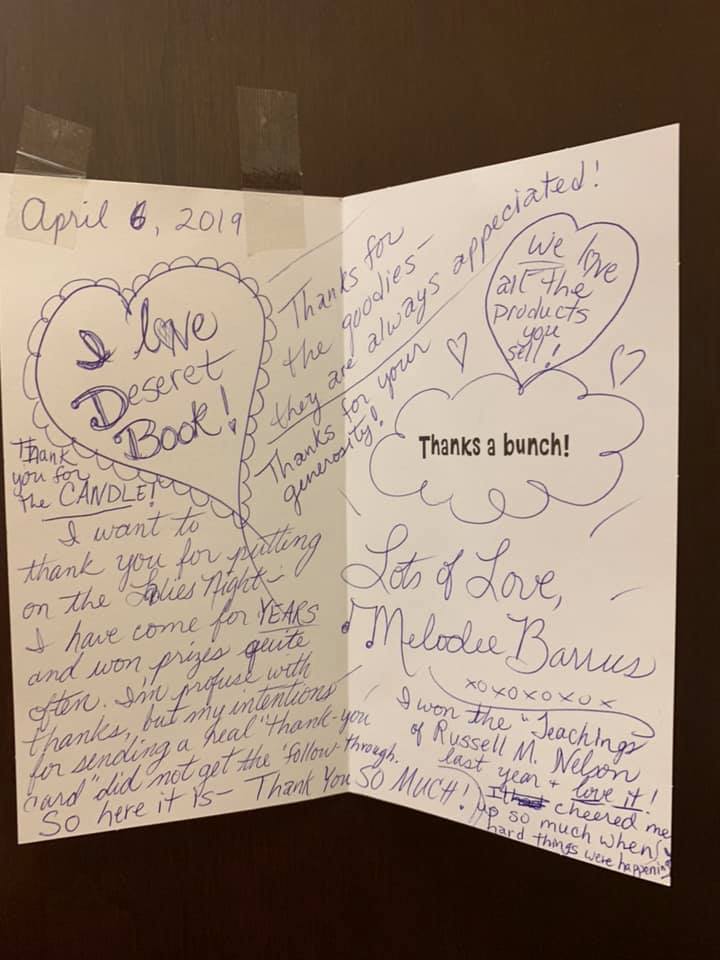 April 6, 2019
I love
Deseret
Book!
Thank
you for
the CANDLE!
I want to
thank you for putting
on the Ladies Night-
I have come for YEARS
and won prizes quite
often. I'm profuse with
thanks, but my intentions
for sending a real "thank-you
card" did not get the 'follow-through.
So here it is- Thank You SO MUCH!
Thanks for
the goodies-
they are always appeciated!
Thanks for your
generosity!
We love
all the
products
you
sell!
Thanks a bunch!
Lots of Love,
Melodee Barrus
xoxoxoxox
I won the "Teachings
of Russell M. Nelson
last year + love it!
It cheered me
up so much when
hard things were happening